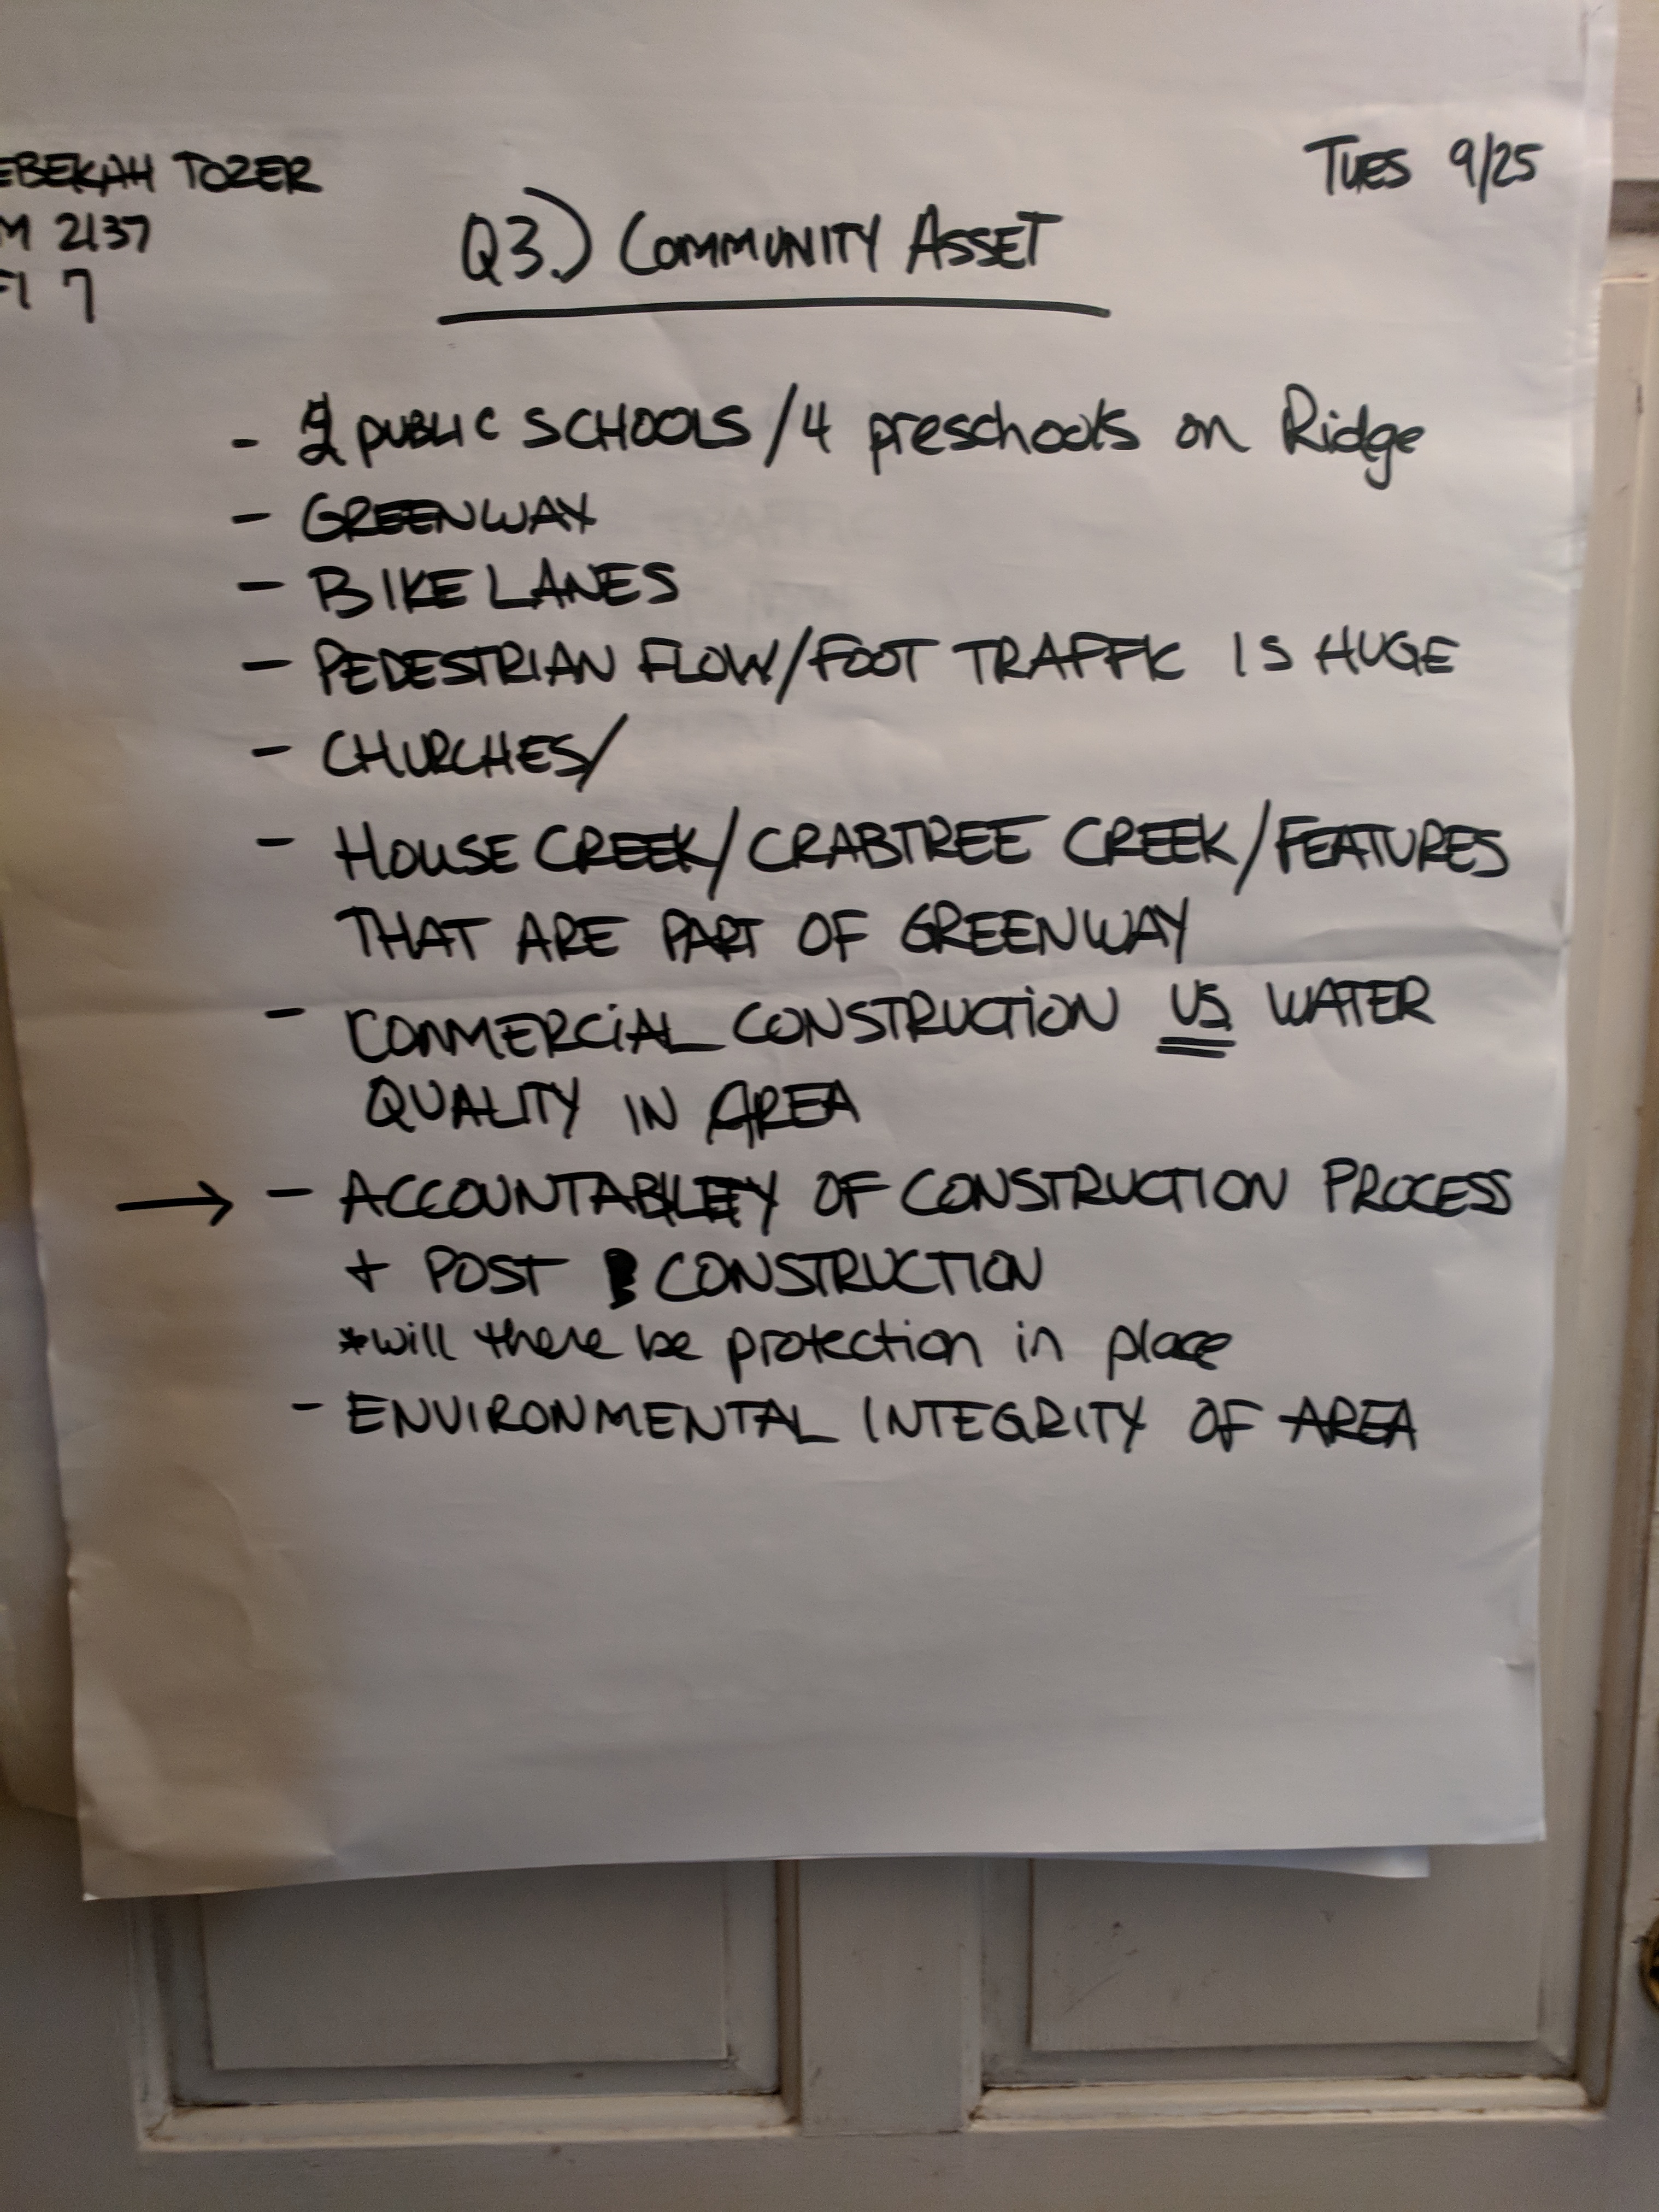 EBEKAH TOZER
TUES 9/25
M 2137
7
Q3.) COMMUNITY ASSET
- 2 PUBLIC SCHOOLS / 4 preschools on Ridge
- GREENWAY
- BIKE LANES
- PEDESTRIAN FLOW/FOOT TRAFFIC IS HUGE
- CHURCHES/
- HOUSE CREEK/CRABTREE CREEK/FEATURES
THAT ARE PART OF GREENWAY
- COMMERCIAL CONSTRUCTION VS WATER
QUALITY IN AREA
→ - ACCOUNTABILITY OF CONSTRUCTION PROCESS
+ POST CONSTRUCTION
*will there be protection in place
- ENVIRONMENTAL INTEGRITY OF AREA